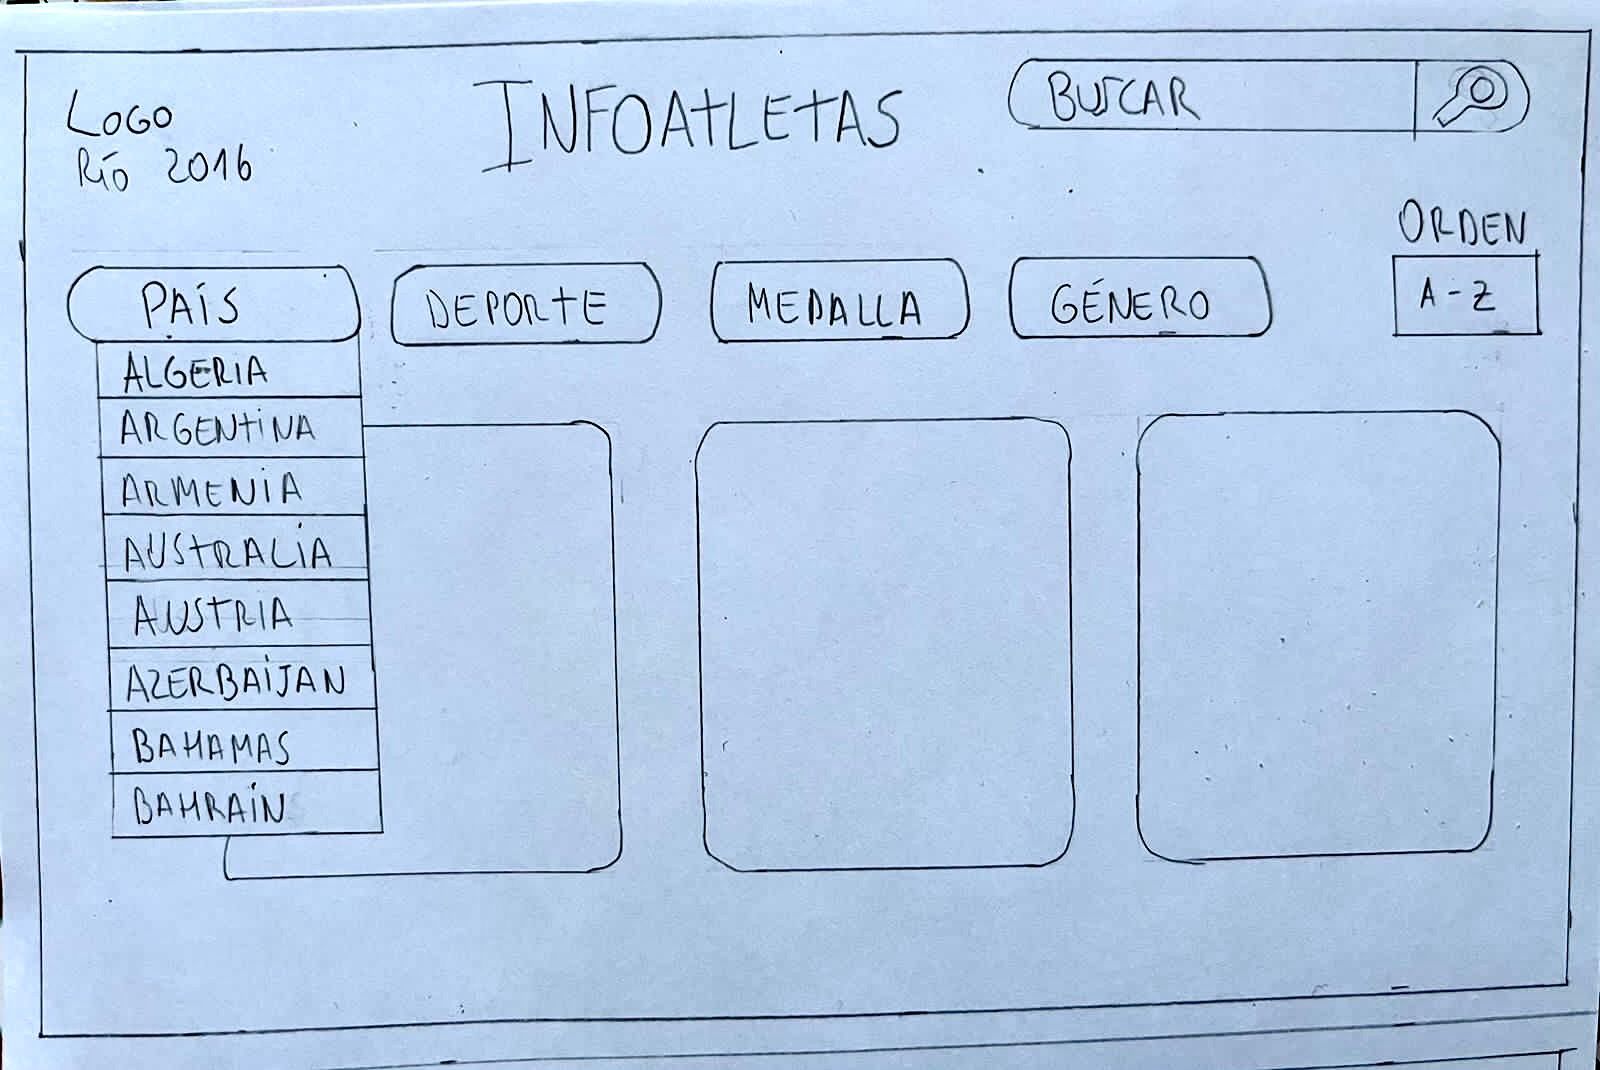 LOGO
RÍO 2016
INFOATLETAS
BUSCAR
ORDEN
A-Z
PAÍS
DEPORTE
MEDALLA
GÉNERO
ALGERIA
ARGENTINA
ARMENIA
AUSTRALIA
AUSTRIA
AZERBAIJAN
BAHAMAS
BAHRAIN